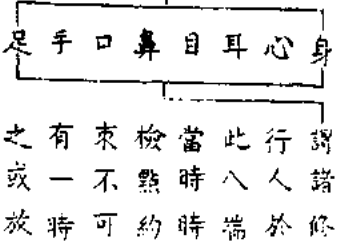 身心耳目鼻口手足
謂諸修
行人於
此八端
當時時
檢點約
束不可
有一時
之或放